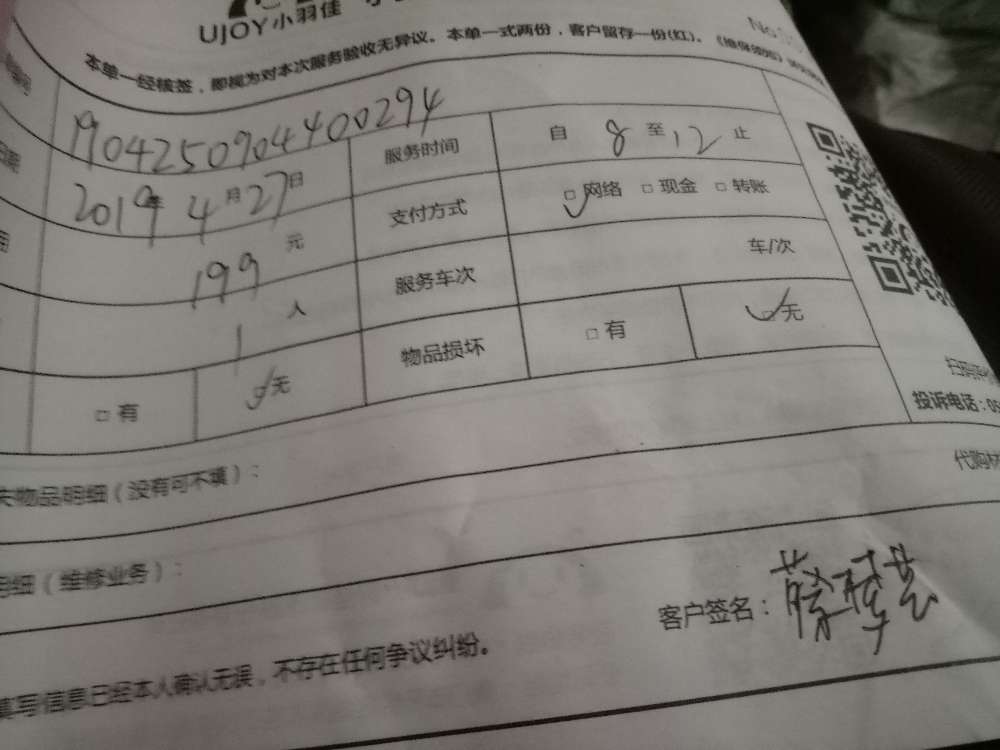 UJOY小羽佳
No.
本单一经核签，即视为对本次服务验收无异议。本单一式两份，客户留存一份(红)。
1904250904400294
服务时间 自 8 至 12 止
2019年 4月27日
支付方式 □网络 □现金 □转账
199 元
服务车次 车/次
1 人
物品损坏 □有 □无
□有 □无
投诉电话：
物品明细（没有可不填）：
代购材
明细（维修业务）：
客户签名：
填写信息已经本人确认无误，不存在任何争议纠纷。